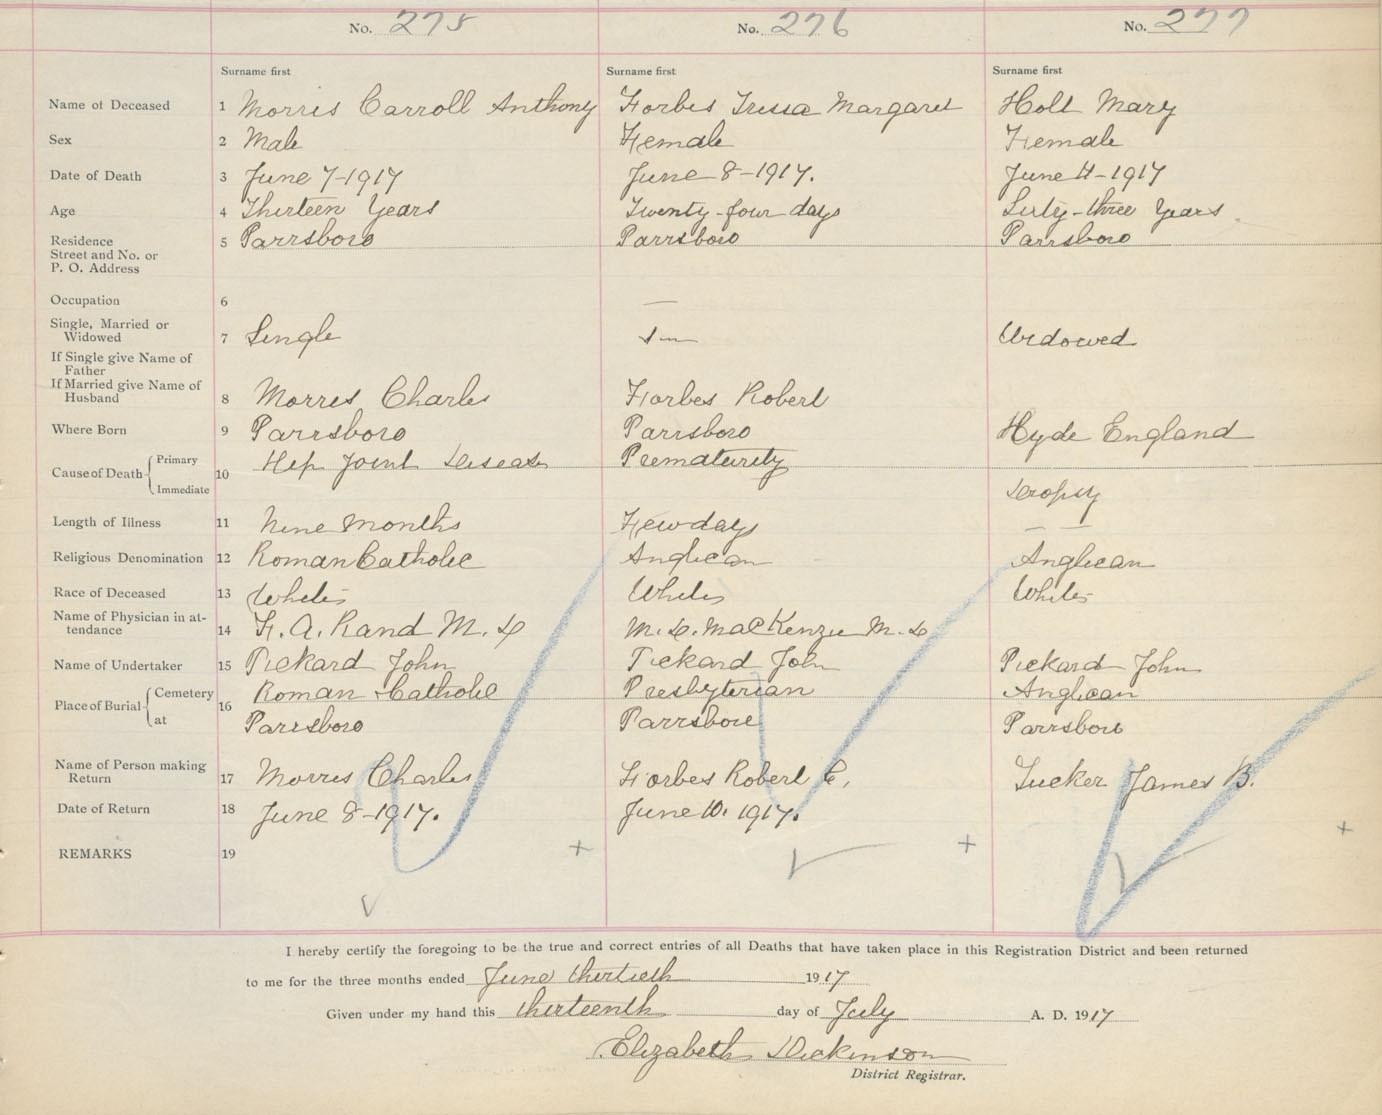 No. 275 No. 276 No. 277
Surname first Surname first Surname first
Name of Deceased 1 Morris Carroll Anthony Forbes Tressa Margaret Holt Mary
Sex 2 Male Female Female
Date of Death 3 June 7-1917 June 8-1917. June 4-1917
Age 4 Thirteen Years Twenty-four days Sixty-three Years
Residence
Street and No. or
P. O. Address
5 Parrsboro Parrsboro Parrsboro
Occupation 6 —
Single, Married or
Widowed
7 Single Widowed
If Single give Name of
Father
If Married give Name of
Husband
8 Morris Charles Forbes Robert
Where Born 9 Parrsboro Parrsboro Hyde England
Cause of Death Primary
Immediate
10 Hip Joint Disease Prematurity
Dropsy
Length of Illness 11 Nine Months Few days — —
Religious Denomination 12 Roman Catholic Anglican Anglican
Race of Deceased 13 White White White
Name of Physician in at-
tendance
14 F. A. Rand M. D M. D. MacKenzie M. D
Name of Undertaker 15 Pickard John Pickard John Pickard John
Place of Burial Cemetery
at
16 Roman Catholic Presbyterian Anglican
Parrsboro Parrsboro Parrsboro
Name of Person making
Return
17 Morris Charles Forbes Robert C. Tucker James B.
Date of Return 18 June 8-1917. June 10. 1917.
REMARKS 19
I hereby certify the foregoing to be the true and correct entries of all Deaths that have taken place in this Registration District and been returned
to me for the three months ended June thirtieth 1917
Given under my hand this thirteenth day of July A. D. 1917
Elizabeth Dickinson
District Registrar.